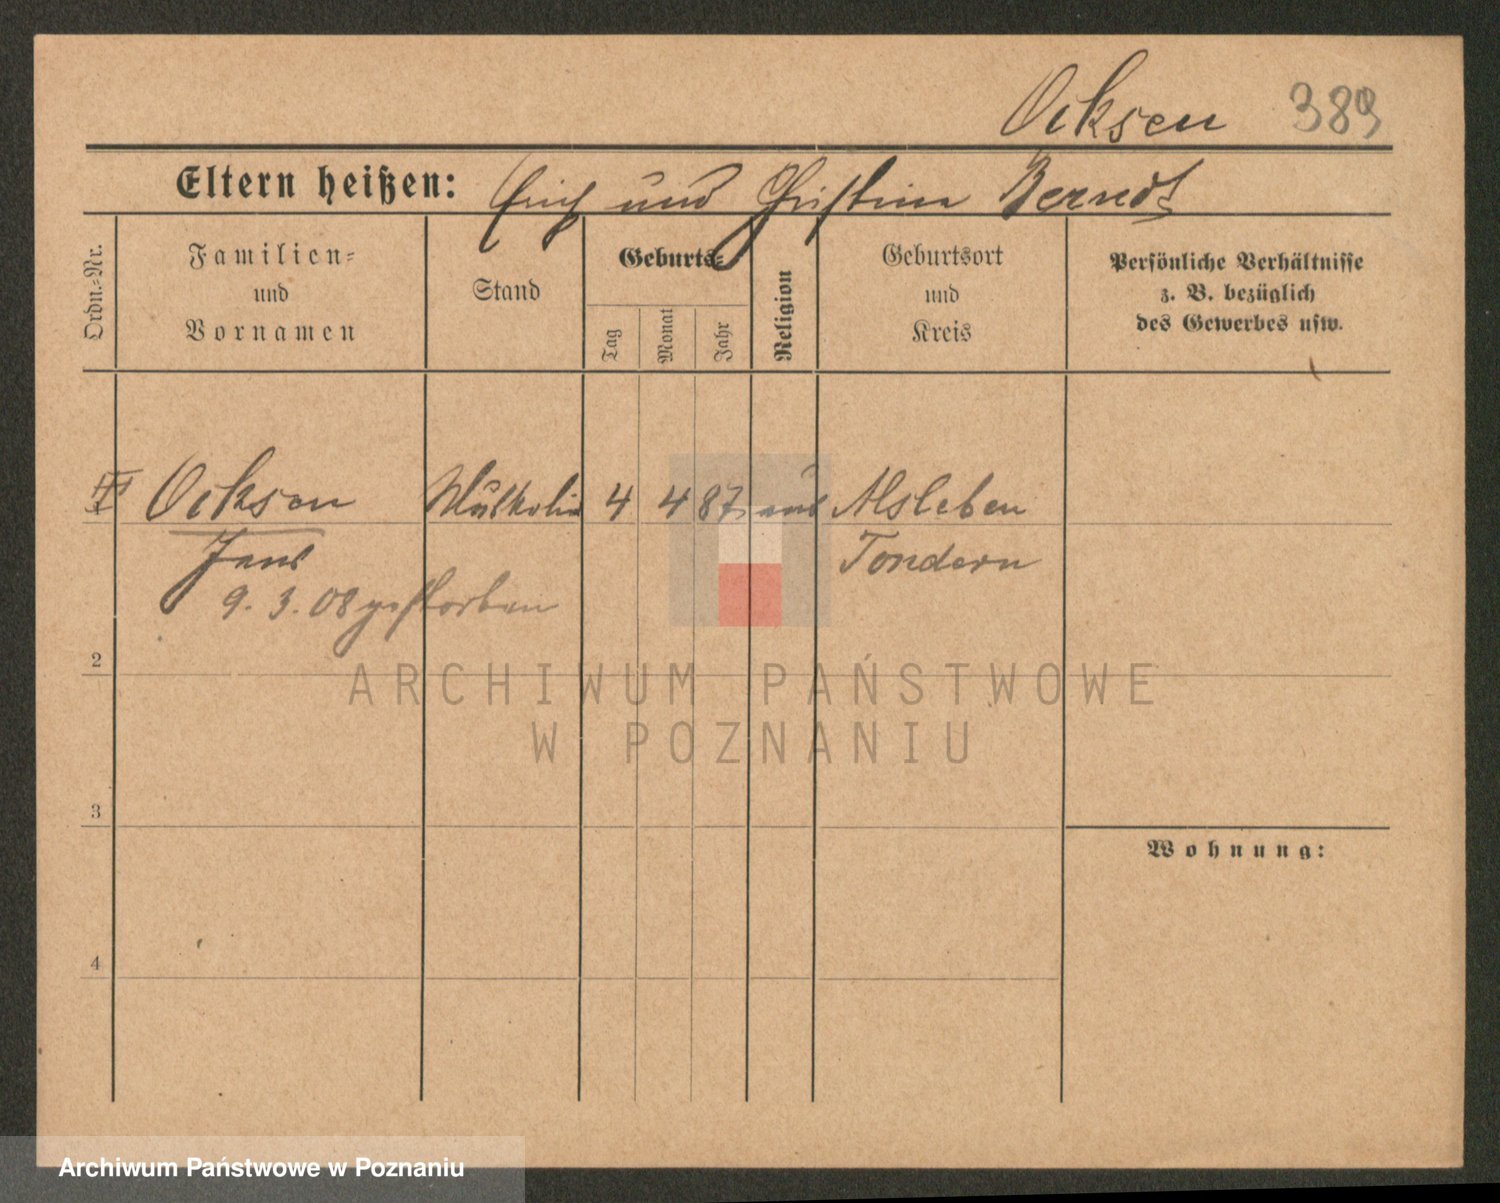 Ocksen 389
Eltern heißen: Erich und Christina Berndt
Ordn.-Nr.
Familien-
und
Vornamen
Stand
Geburts-
Tag
Monat
Jahr
Religion
Geburtsort
und
Kreis
Persönliche Verhältnisse
z. B. bezüglich
des Gewerbes usw.
Ocksen Musketier 4 4 87 aus Alsleben
Jens Tondern
9. 3. 08 gestorben
2
3
4
Wohnung:
ARCHIWUM PAŃSTWOWE
W POZNANIU
Archiwum Państwowe w Poznaniu